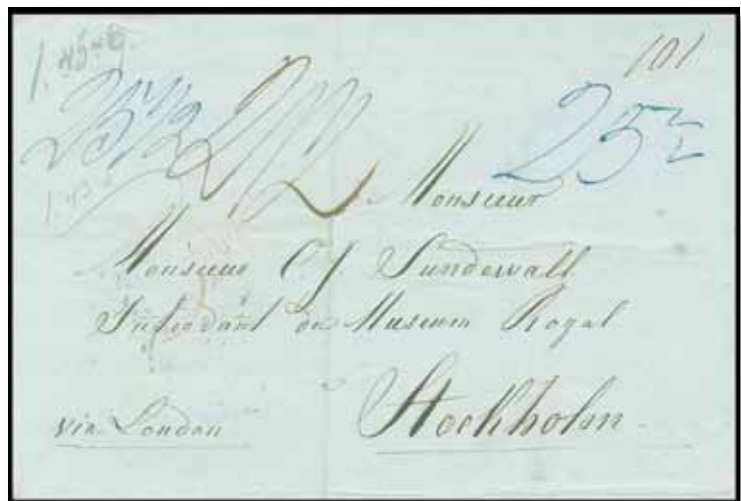 101
25
Monsieur
Monsieur C. J. Sundewall
Intendant du Museum Royal
Stockholm
via London